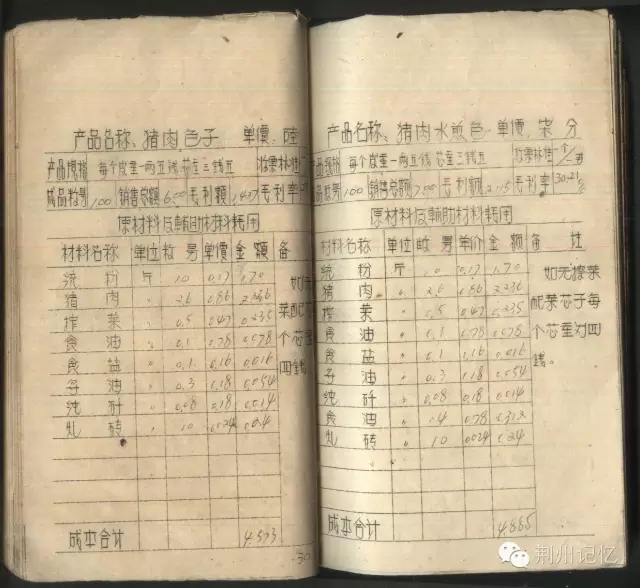 产品名称、猪肉包子 单價、陸
产品规格 每个皮重一两五钱 芯重三钱五
成品数量 100 销售总额 6.00 毛利额 1.427 毛利率
原材料及輔助材料耗用
材料名称 单位 数 另 单價 金 额 备
流 粉 斤 10 0.17 1.70
猪 肉 〃 2.6 0.86 2.236
搾 菜 〃 0.5 0.47 0.235
食 油 〃 0.1 0.78 0.078
食 盐 〃 0.1 0.16 0.016
子 油 〃 0.3 0.18 0.054
纯 矸 〃 0.08 0.18 0.014
灶 砖 〃 10 0.024 0.24
如
菜配
个芯重
四钱
成本合计 4.573
产品名称、猪肉水煎包 单價、柒 分
产品规格 每个皮重一两五钱 芯重三钱五
成品数另 100 销售总额 7.00 毛利额 2.115 毛利率 30.21%
原材料及輔助材料耗用
材料名称 单位 数 另 单价 金 额 备 注
流 粉 斤 10 0.17 1.70
猪 肉 〃 2.6 0.86 2.236
搾 菜 〃 0.5 0.47 0.235
食 油 〃 0.1 0.78 0.078
食 盐 〃 0.1 0.16 0.016
子 油 〃 0.3 0.18 0.054
纯 矸 〃 0.08 0.18 0.014
食 油 〃 0.4 0.78 0.312
灶 砖 〃 10 0.024 0.24
如无搾菜
配菜芯子每
个芯重对四
钱。
成本合计 4.885
荆州记忆